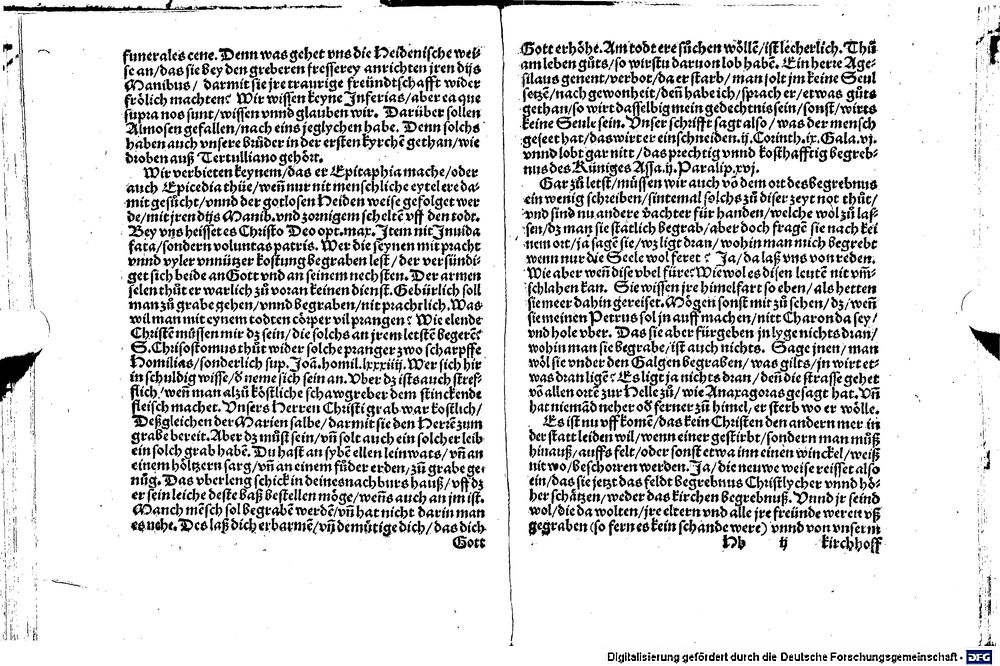 funerales cene. Denn was gehet vns die Heidenische wei-
se an/das sie bey den greberen fresserey anrichten jren dijs
Manibus/ darmit sie jre traurige freündtschafft wider
frölich machten? Wir wissen keyne Inferias/aber ea que
supra nos sunt/wissen vnnd glauben wir. Darüber sollen
Almosen gefallen/nach eins jeglychen habe. Denn solchs
haben auch vnsere brüder in der ersten kyrchē gethan/wie
droben auß Tertulliano gehört.
Wir verbieten keynem/das er Epitaphia mache/oder
auch Epicedia thüe/weñ nur nit menschliche eytel ere da-
mit gesücht/vnnd der gotlosen Heiden weise gefolget wer
de/mit jren dijs Manib.vnd zornigem scheltē vff den todt.
Bey vns heisset es Christo Deo opt.max. Item nit Inuida
fata/sondern voluntas patris. Wer die seynen mit pracht
vnnd vyler vnnützer kostung begraben lest/ der versündi-
get sich beide an Gott vnd an seinem nechsten. Der armen
selen thüt er warlich zů voran keinen dienst. Gebürlich soll
man zů grabe gehen/vnnd begraben/nit prachtlich. Was
wil man mit eynem todten cörper vil prangen? Wie elende
Christē müssen mir dz sein/die solchs an jrem letstē begerē?
S. Chrisostomus thůt wider solche pranger zwo scharpffe
Homilias/sonderlich sup. Joā.homil.lxxxiiij. Wer sich hir
in schuldig wisse/d neme sich sein an. Vber dz ists auch stref-
flich/weñ man alzů köstliche schawgreber dem stinckende
fleisch machet. Vnsers Herren Christi grab war kostlich/
Deßgleichen der Marien salbe/darmit sie den Herrē zum
grabe bereit. Aber dz můst sein/vñ solt auch ein solcher leib
ein solch grab habē. Du hast an sybē ellen leinwats/vñ an
einem höltzern sarg/vñ an einem fůder erden/zů grabe ge-
nůg. Das vberleng schick in deines nachburs hauß/vff dz
er sein leiche deste baß bestellen möge/weñs auch an jm ist.
Manch mēsch sol begrabē werdē/vñ hat nicht darin man
es nehe. Des laß dich erbarmē/vñ demütige dich/das dich
Gott
Gott erhöhe. Am todt ere sůchen wöllē/ist lecherlich. Thů
am leben gůts/so wirstu daruon lob habē. Ein herre Age-
silaus genent/verbot/da er starb/ man solt jm keine Seul
setzē/nach gewonheit/deñ habe ich/sprach er/etwas gůts
gethan/so wirt dasselbig mein gedechtnis sein/sonst/wirts
keine Seule sein. Vnser schrifft sagt also/ was der mensch
geseet hat/das wirt er einschneiden.ij.Corinth.ix.Gala.vj.
vnnd lobt gar nitt/das prechtig vnnd kosthafftig begreb-
nus des Küniges Assa.ij.Paralip.xvj.
Gar zů letst/müssen wir auch vō dem ort des begrebnus
ein wenig schreiben/sintemal solchs zů diser zeyt not thůt/
vnd sind nu andere vächter für handen/welche wol zů las-
sen/dz man sie statlich begrab/aber doch fragē sie nach kei
nem ort/ja sagē sie/wz ligt dran/wohin man mich begrebt
wenn nur die Seele wol feret? Ja/da laß vns von reden.
Wie aber weñ dise vbel füre? Wiewol es disen leutē nit vm-
schlahen kan. Sie wissen jre himelfart so eben/als hetten
sie meer dahin gereiset. Mögen sonst mit zů sehen/dz/weñ
sie meinen Petrus sol jn auff machen/nitt Charon da sey/
vnd hole vber. Das sie aber fürgeben jn lyge nichts dran/
wohin man sie begrabe/ist auch nichts. Sage jnen/man
wöl sie vnder den Galgen begraben/was gilts/jn wirt et-
was dran ligē? Es ligt ja nichts dran/deñ die strasse gehet
vō allen ortē zur Helle zů/wie Anaxagoras gesagt hat. Vñ
hat niemād neher od ferner zů himel/er sterb wo er wölle.
Es ist nu vff komē/das kein Christen den andern mer in
der statt leiden wil/wenn einer gestirbt/sondern man můß
hinauß/auffs felt/oder sonst etwa inn einen winckel/weiß
nit wo/beschoren werden. Ja/die neuwe weise reisset also
ein/das sie jetzt das feldt begrebnus Christlycher vnnd hö-
her schätzen/weder das kirchen begrebnuß. Vnnd jr seind
wol/die da wolten/jre eltern vnd alle jre freünde weren vß
gegraben (so fern es kein schande were) vnnd von vnserm
Hh ij kirchhoff
Digitalisierung gefördert durch die Deutsche Forschungsgemeinschaft - DFG